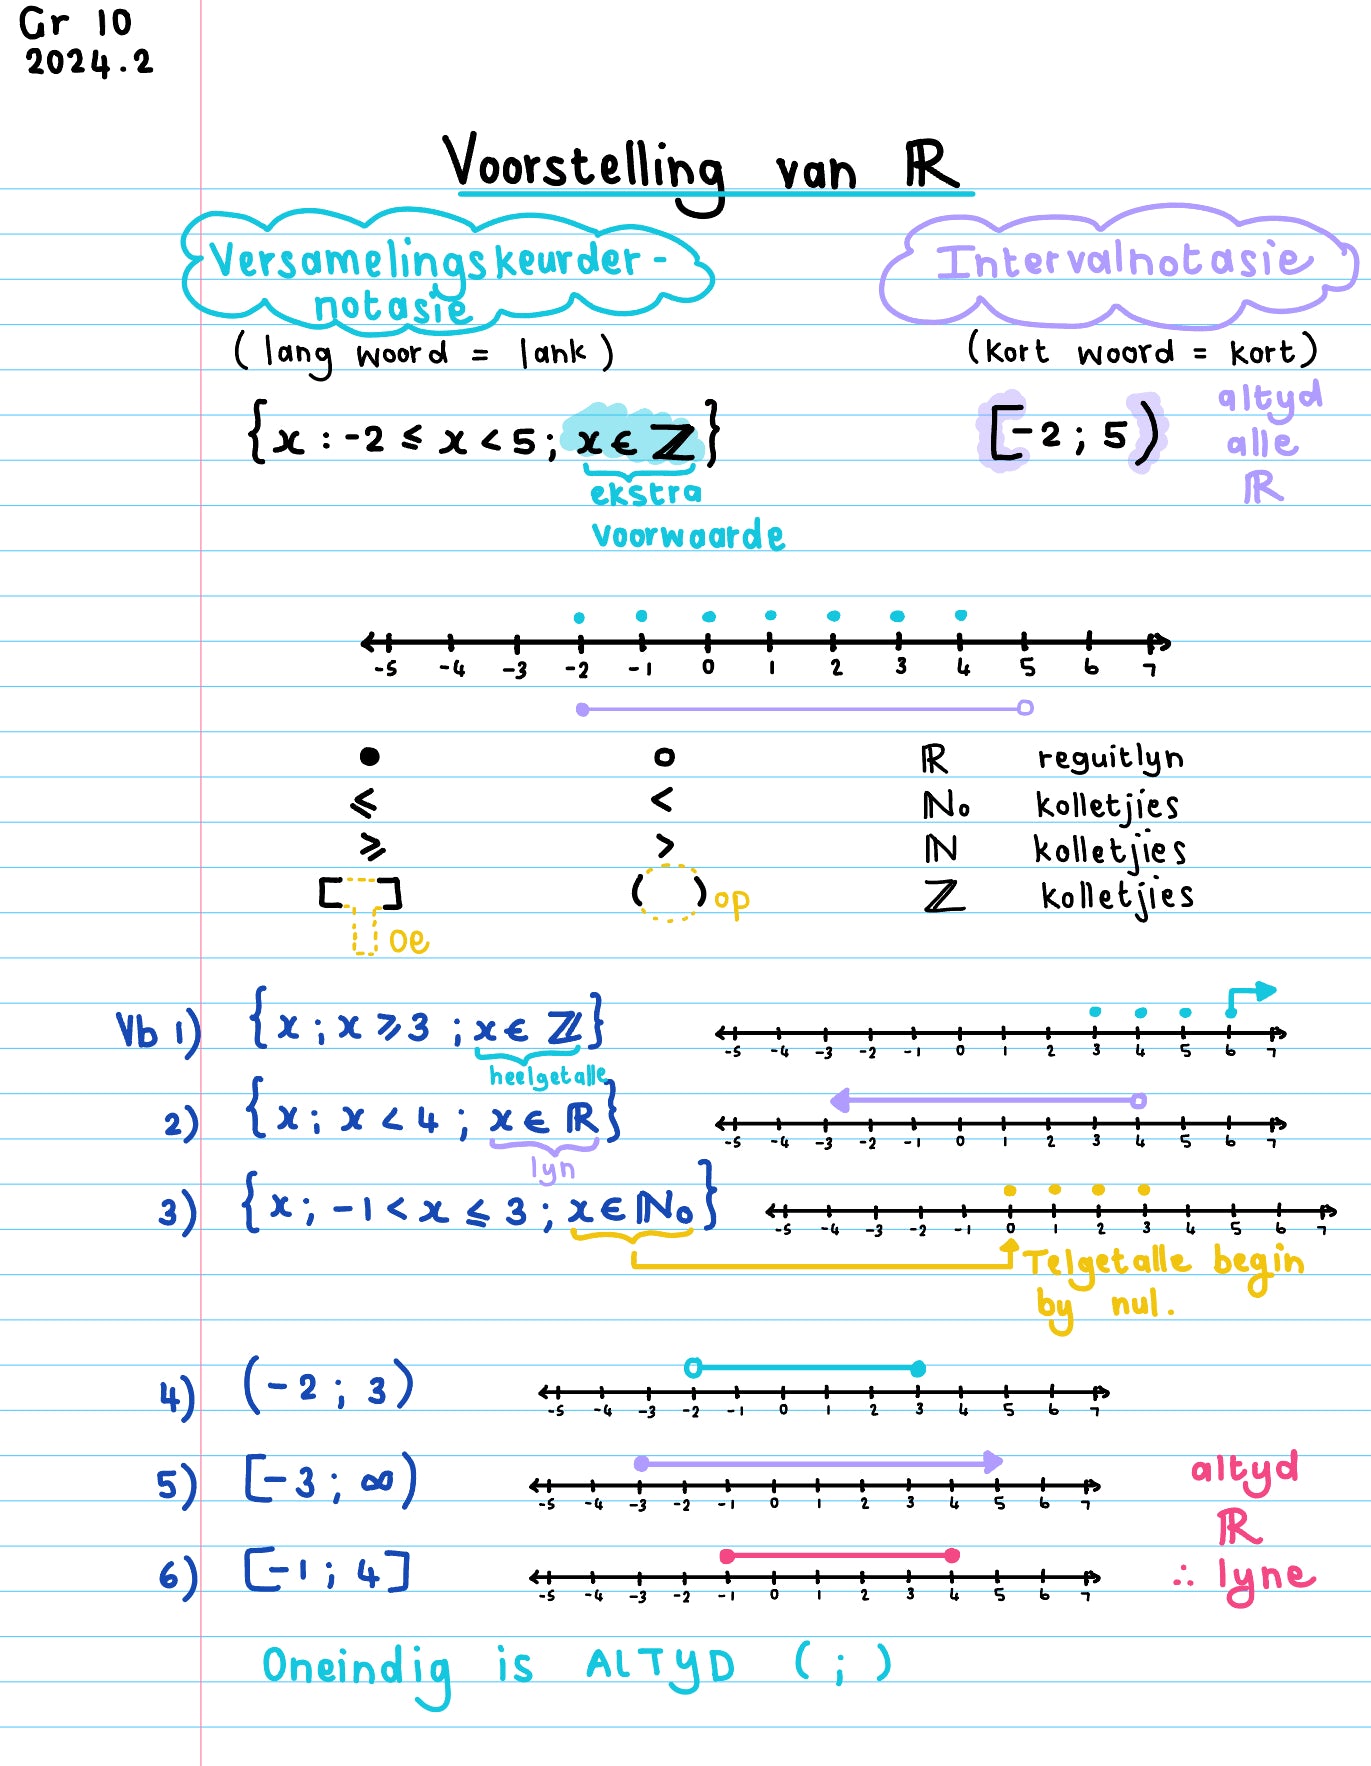 Gr 10
2024.2
Voorstelling van ℝ
Versamelingskeurder-
notasie
Intervalnotasie
(lang woord = lank)
(kort woord = kort)
{x : -2 ≤ x < 5; x ∈ ℤ}
[-2 ; 5)
altyd
alle
ℝ
ekstra
voorwaarde
-5 -4 -3 -2 -1 0 1 2 3 4 5 6 7
ℝ reguitlyn
≤ < ℕ₀ kolletjies
≥ > ℕ kolletjies
[ ] ( ) op ℤ kolletjies
oe
Vb 1) {x ; x ≥ 3 ; x ∈ ℤ}
-5 -4 -3 -2 -1 0 1 2 3 4 5 6 7
heelgetalle
2) {x ; x < 4 ; x ∈ ℝ}
-5 -4 -3 -2 -1 0 1 2 3 4 5 6 7
lyn
3) {x ; -1 < x ≤ 3 ; x ∈ ℕ₀}
-5 -4 -3 -2 -1 0 1 2 3 4 5 6 7
Telgetalle begin
by nul.
4) (-2 ; 3)
-5 -4 -3 -2 -1 0 1 2 3 4 5 6 7
5) [-3 ; ∞)
-5 -4 -3 -2 -1 0 1 2 3 4 5 6 7
altyd
ℝ
∴ lyne
6) [-1 ; 4]
-5 -4 -3 -2 -1 0 1 2 3 4 5 6 7
Oneindig is ALTYD ( ; )